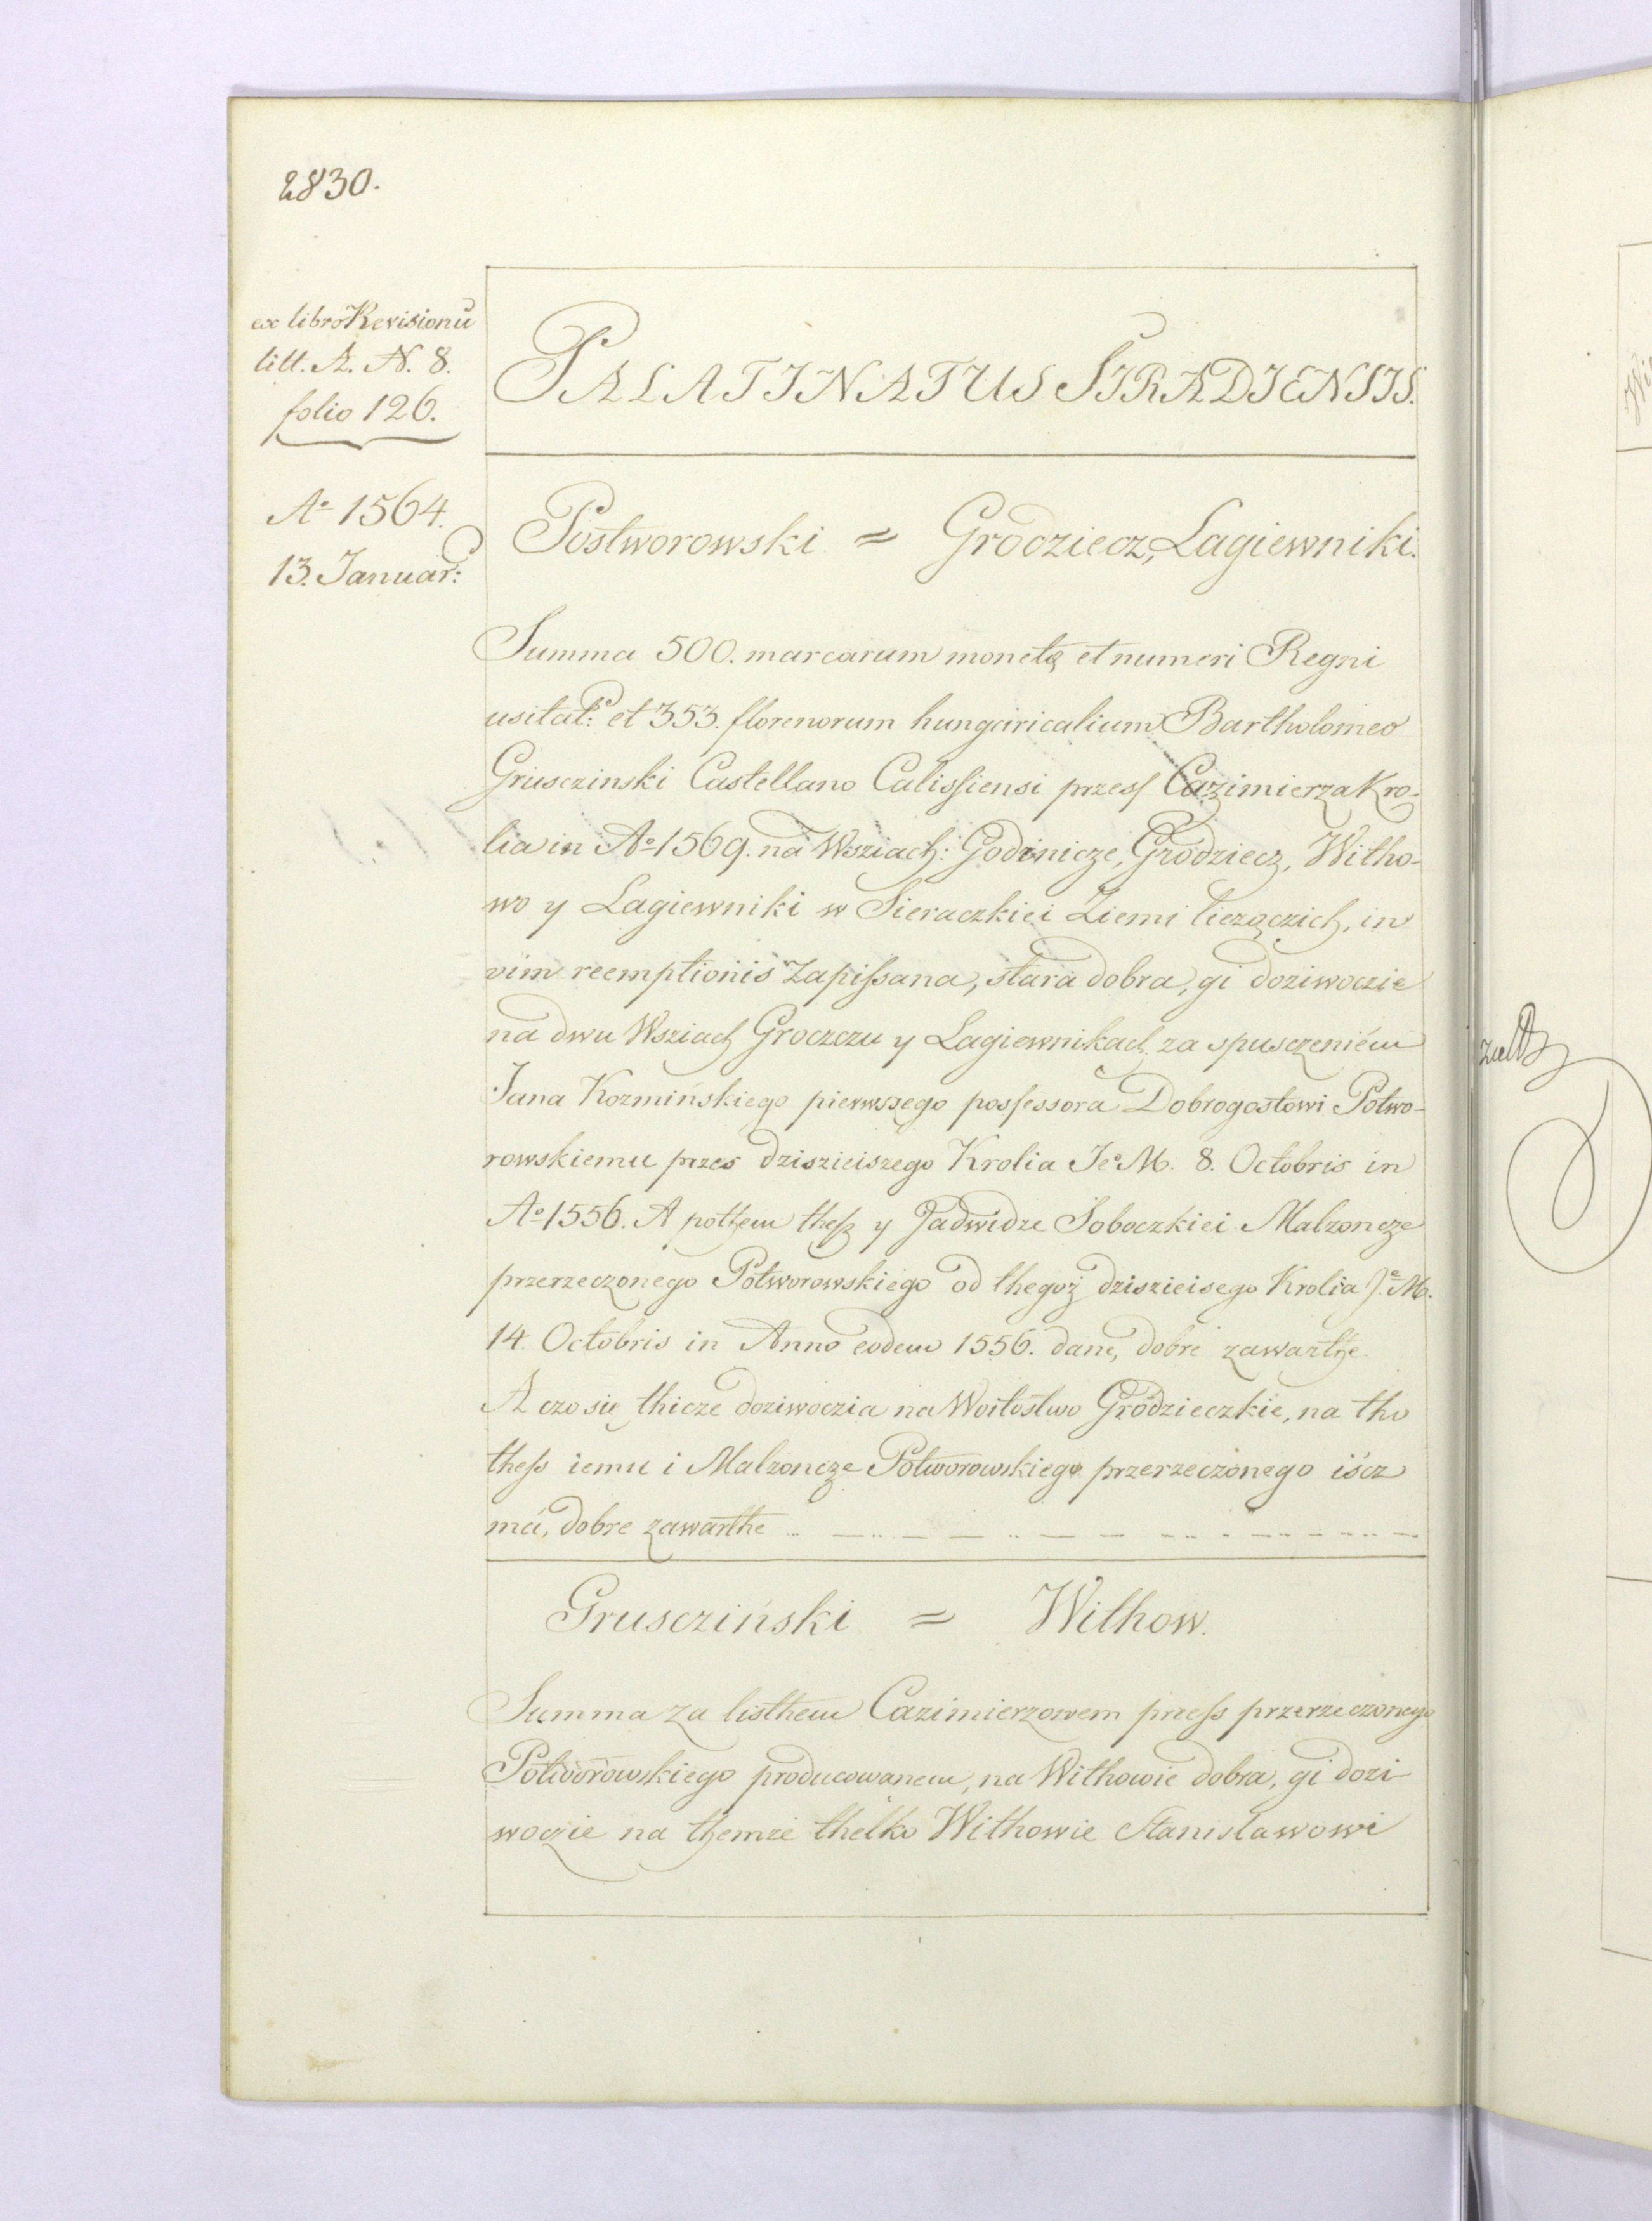 2830.
ex libro Revisionū
litt. A. N. 8.
folio 126.
Aº 1564.
13. Januar:
PALATINATUS SIRADIENSIS.
Postworowski = Grodziecz, Lagiewniki.
Summa 500. marcarum monetę et numeri Regni
usitat: et 353. florenorum hungaricalium Bartholomeo
Grusczinski Castellano Calissiensi przess Cazimierza Kro-
lia in Aº 1569. na Wsziach: Godinicze, Grodziecz, Witho-
wo y Lagiewniki w Sieraczkiei Ziemi liezączich, in
vim reemptionis zapissana, stara dobra, gi doziwoczie
na dwu Wsziach Groczczu y Lagiewnikach, za spusczeniem
Jana Kozmińskiego pierwszego possessora Dobrogostowi Potwo-
rowskiemu przes dziszieiszego Krolia Jeº M. 8. Octobris in
Aº 1556. A pothem thesz y Jadwidze Soboczkiei Malzoncze
przerzeczonego Potworowskiego od thegoż dziszieisego Krolia J. M.
14. Octobris in Anno eodem 1556. dane, dobre zawarthe
A czo się thicze doziwoczia na Woitostwo Grodzieczkie, na tho
thess iemu i Malzoncze Potworowskiego przerzeczonego iścz
má, dobre zawarthe
Gruscziński = Withow.
Summa za listhem Cazimierzowem przess przerzeczonego
Potworowskiego producowanem, na Withowie dobra, gi dozi-
woczie na themze thelko Withowie Stanisławowi